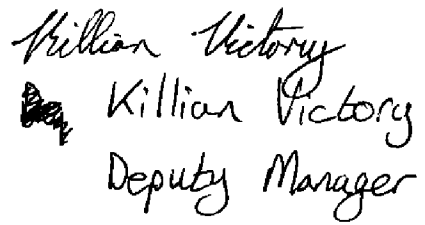 Killian Victory
Killian Victory
Deputy Manager